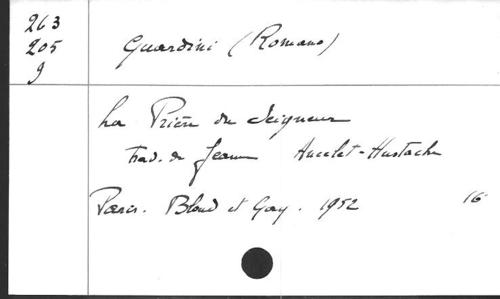 263
205
9
Guardini (Romano)
La Prière du Seigneur
Trad. de Jeanne Ancelet-Hustache
Paris. Bloud et Gay. 1952 16